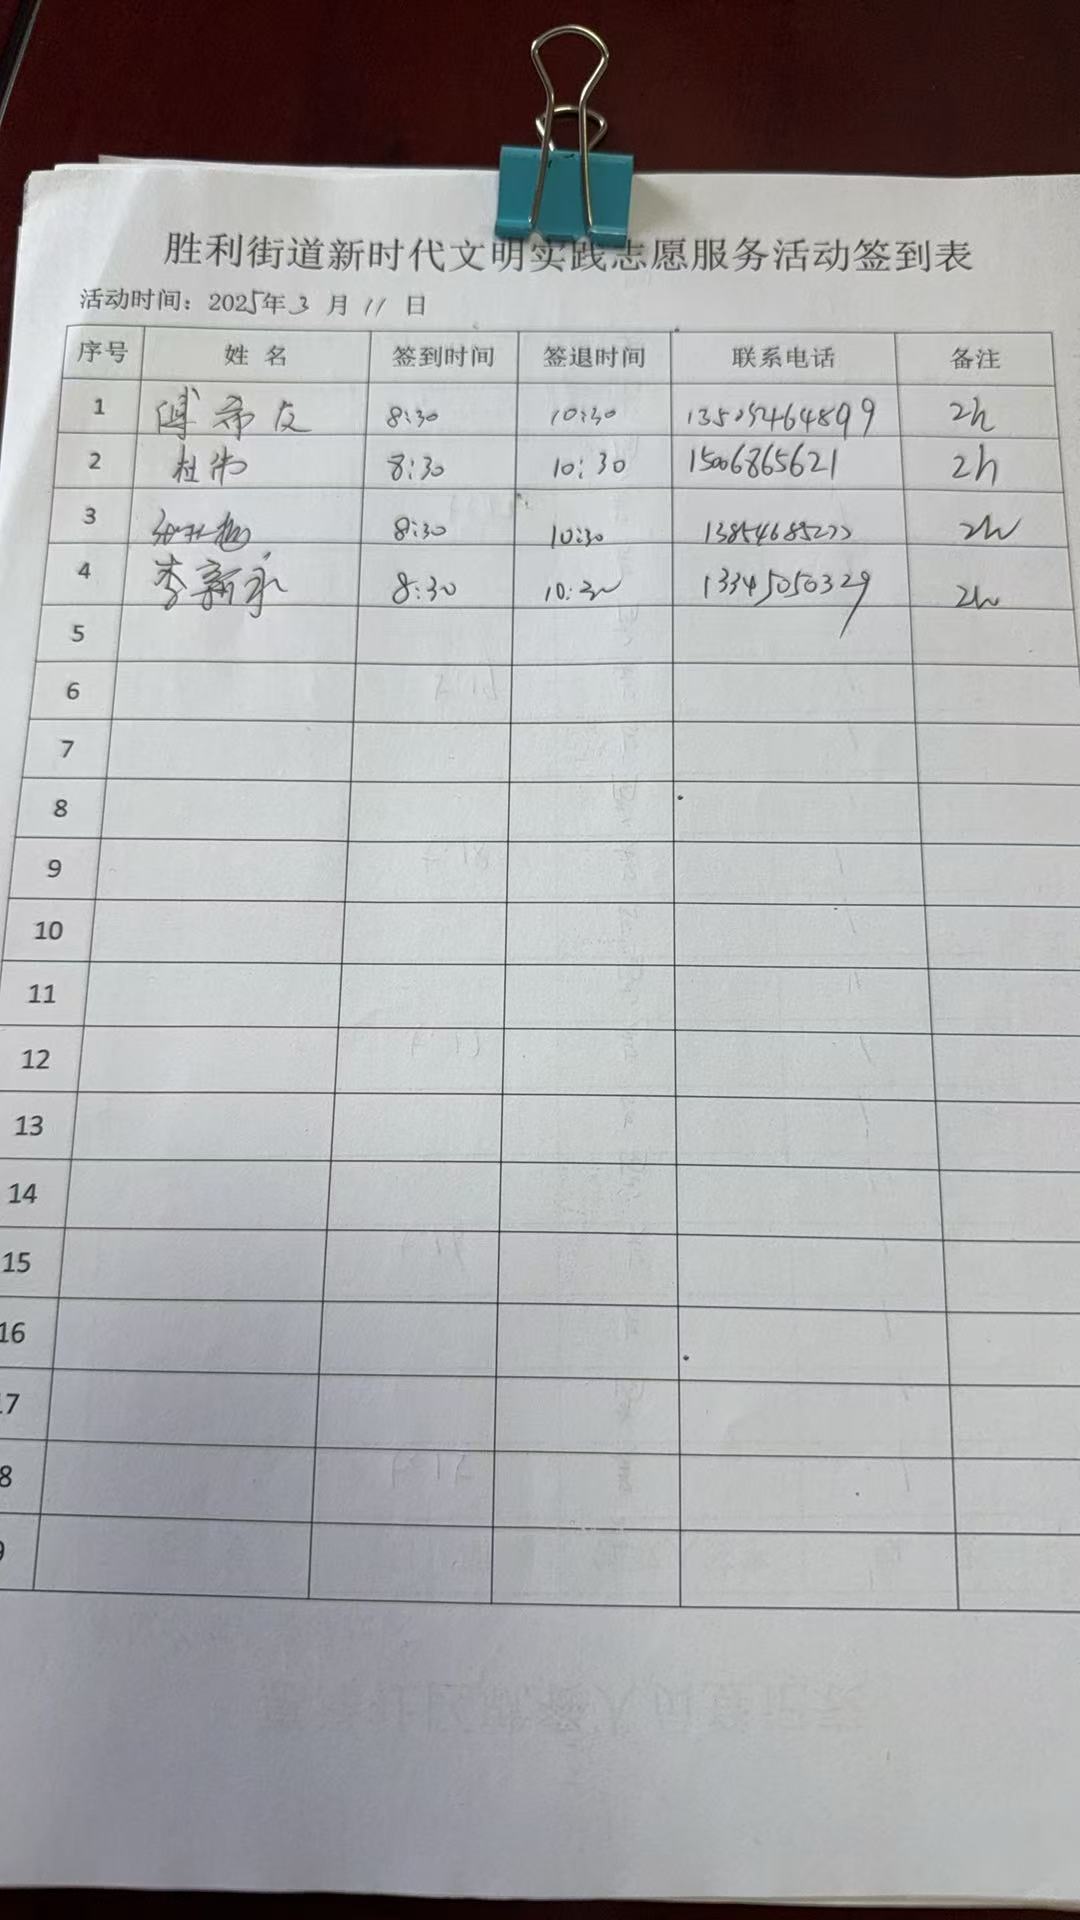 胜利街道新时代文明实践志愿服务活动签到表
活动时间：2025年3月11日
序号 姓名 签到时间 签退时间 联系电话 备注
1 傅希友 8:30 10:30 13505464899 2h
2 杜伟 8:30 10:30 15006865621 2h
3 8:30 10:30 2h
4 李新永 8:30 10:30 13345050329 2h
5
6
7
8
9
10
11
12
13
14
15
16
17
8
9